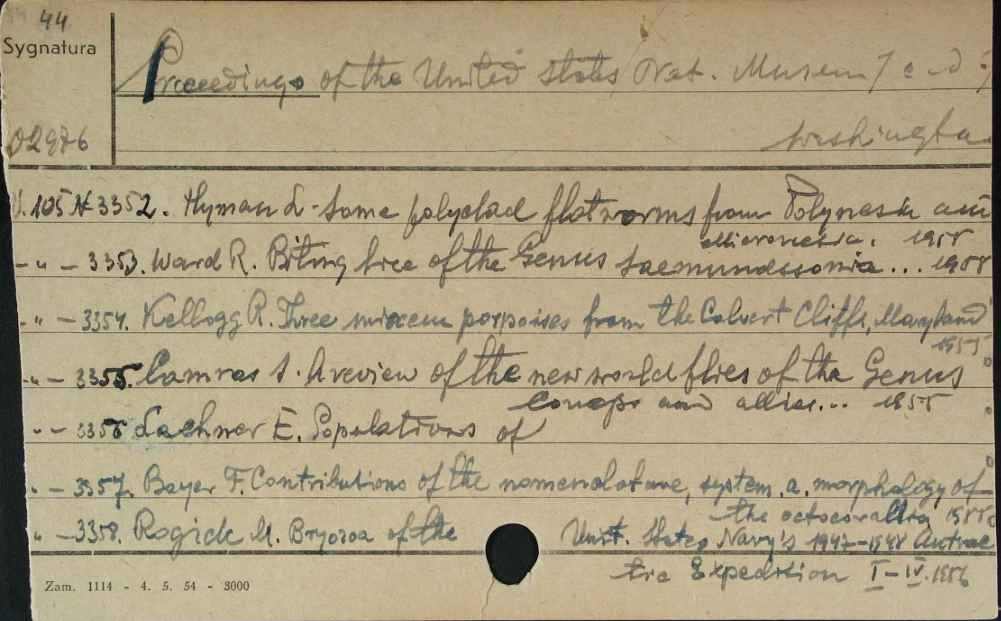 44
Sygnatura
Proceedings of the United States Nat. Museum
Washington
02986
V. 105 N 3352. Hyman L. Some polyclad flatworms from Polynesia and
Micronesia. 1955
-„- 3353. Ward R. Biting lice of the Genus Saemundssonia... 1955
-„- 3354. Kellogg R. Three miocene porpoises from the Calvert Cliffs, Maryland
1955
-„- 3355. Camras S. A review of the new world flies of the Genus
Conops and allies... 1955
-„- 3356 Lachner E. Populations of
-„- 3357. Bayer F. Contributions of the nomenclature, system. a. morphology of
the octocorallia 1955
„- 3358. Rogick M. Bryozoa of the Unit. States Navy's 1947-1948 Antrac
tic Expedition I-IV. 1956
Zam. 1114 - 4. 5. 54 - 3000